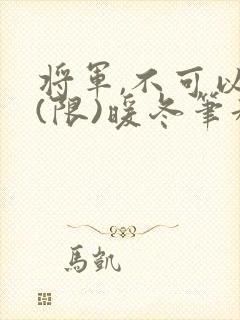 將軍,不可以
(限)暖冬筆
馬凱